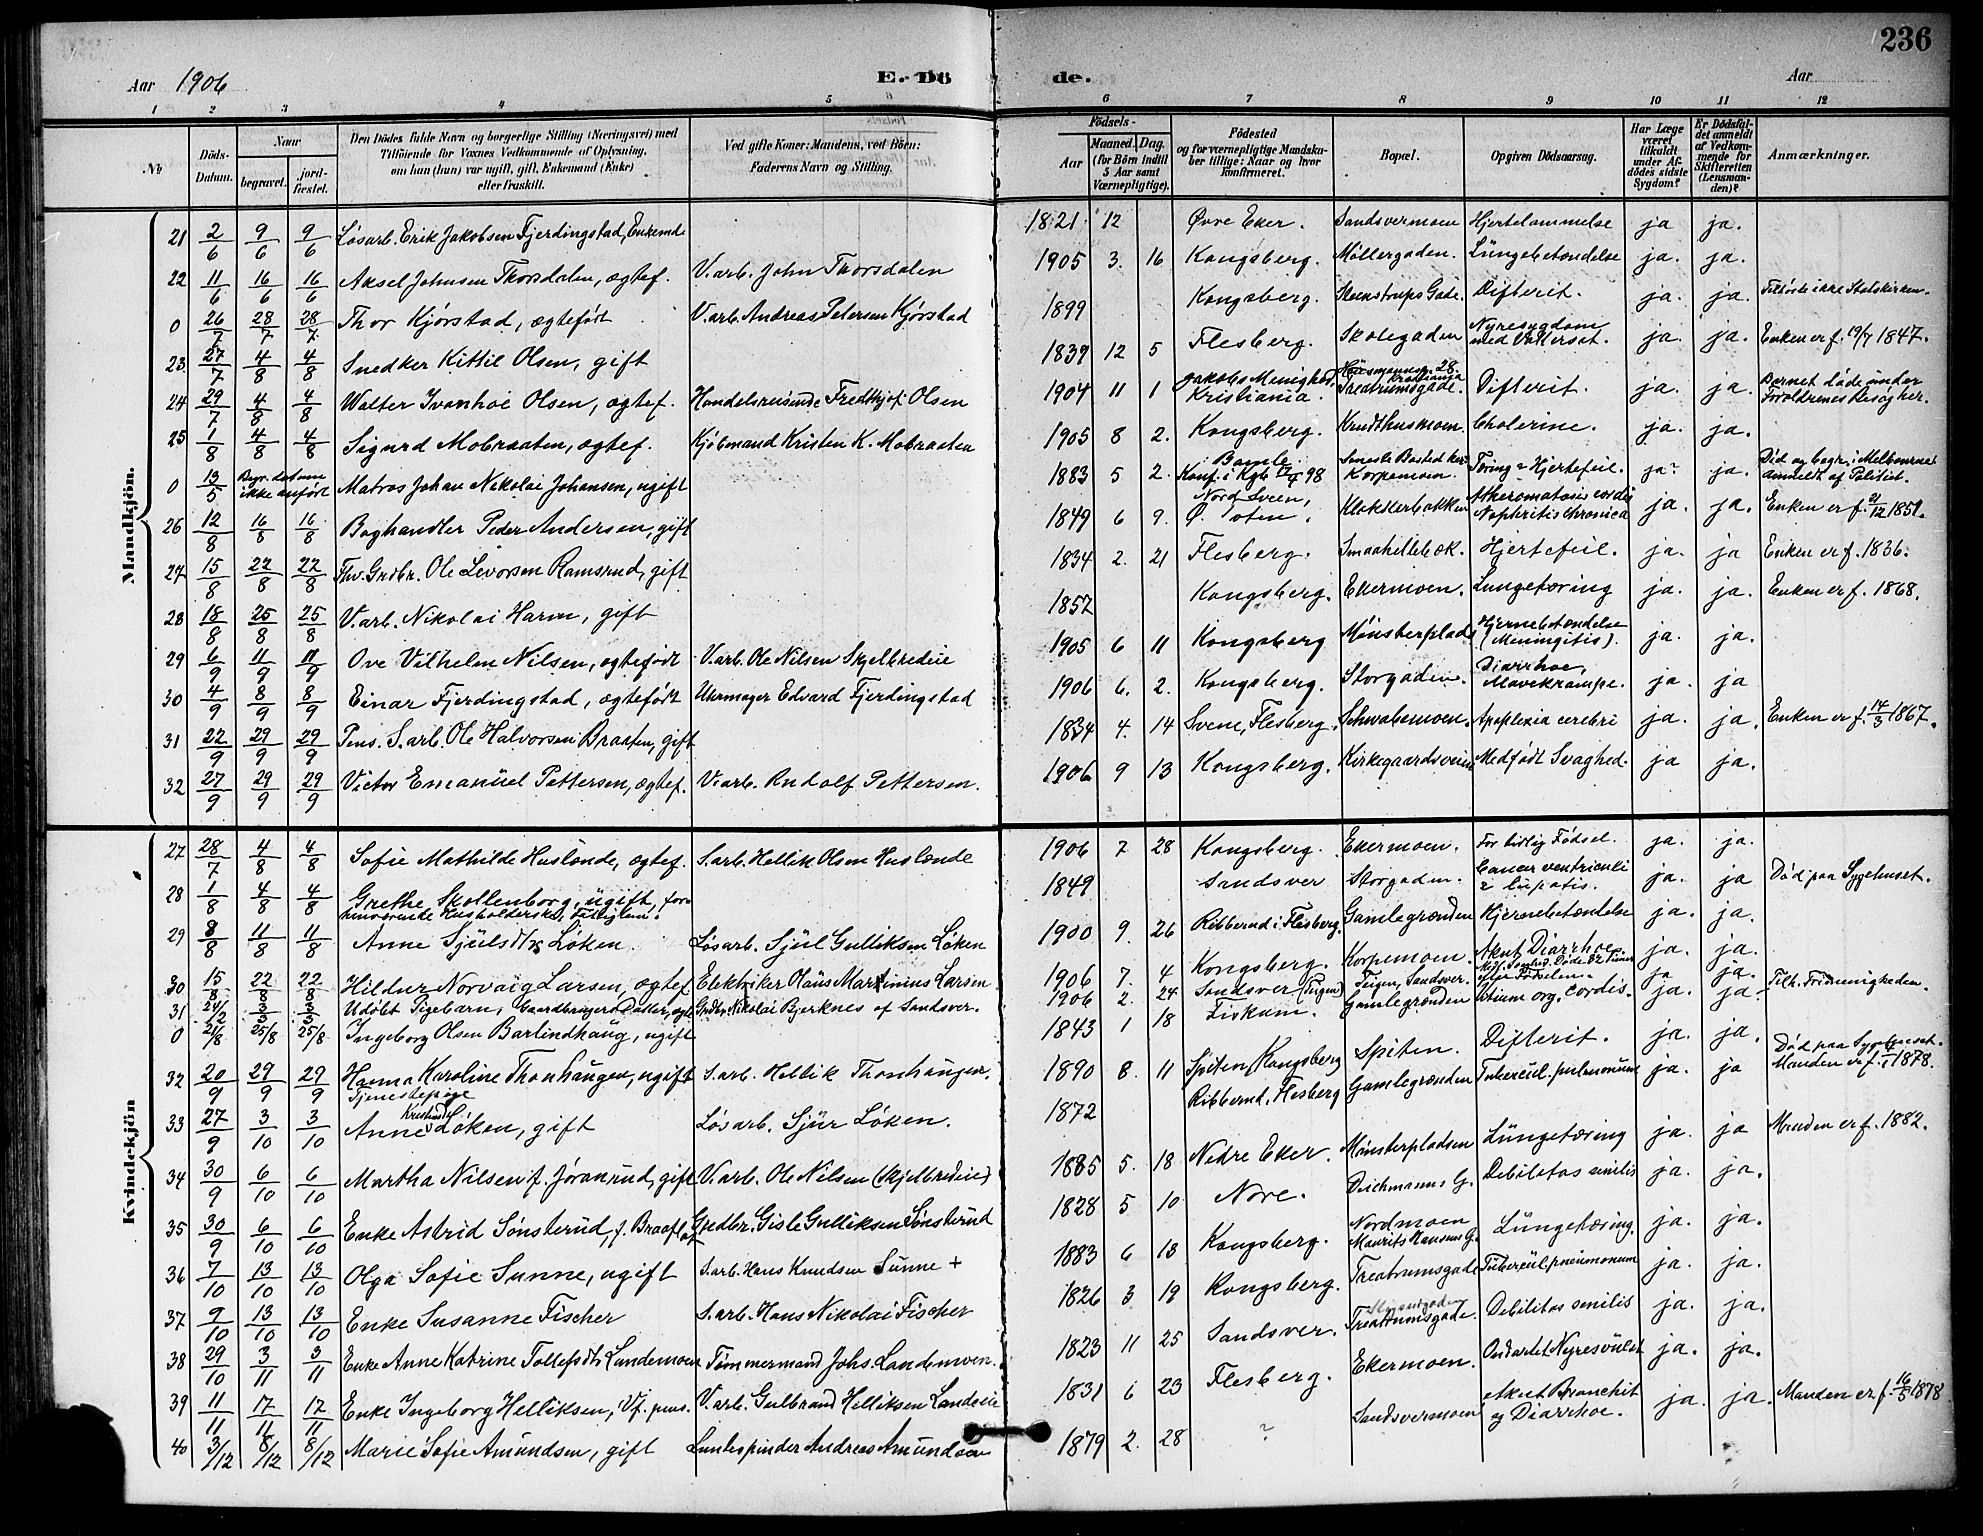 236
Aar 1906 E. Dö de. Aar
1 2 3 4 5 6 7 8 9 10 11 12
No Döds-Datum. Naar begravet. jordfæstet. Den Dödes fulde Navn og borgerlige Stilling (Næringsvei) med Tilföiende for Voxnes Vedkommende af Oplysning, om han (hun) var ugift, gift, Enkemand (Enke) eller fraskilt. Ved gifte Koner: Mandens, ved Börn: Faderens Navn og Stilling. Födsels- Aar Maaned. Dag. (for Börn indtil 5 Aar samt Værnepligtige). Födested og for værnepligtige Mandskaber tillige: Naar og hvor konfirmeret. Bopæl. Opgiven Dödsaarsag. Har Læge været tilkaldt under Afdödes sidste Sygdom? Er Dödsfaldet anmeldt af Vedkommende for Skifteretten (Lensmanden)? Anmærkninger.
Mandkjön.
21 2/6 9/6 9/6 Løsarb. Erik Jakobsen Fjerdingstad, Enkemd 1821 12 Øvre Eker. Sandsvermoen Hjertelammelse ja ja.
22 11/6 16/6 16/6 Aksel Johnsen Thorsdalen, ægtef. V.arb. John Thorsdalen 1905 3. 16 Kongsberg. Møllergaden. Lungebetændelse ja. ja.
0 26/7 28/7 28/7 Thor Kjørstad, ægtefødt V.arb. Andreas Petersen Kjørstad 1899 Kongsberg. Steenstrups Gade. Difterit. ja. ja. Tilhørte ikke Statskirken.
23. 27/7 4/8 4/8 Snedker Kittil Olsen, gift 1839 12 5 Flesberg. Skolegaden Nyresygdom med Vattersot. ja. ja. Enken er f. 19/7 1847.
24 29/7 4/8 4/8 Walter Ivanhoe Olsen, ægtef. Handelsreisende Fredthjof Olsen 1904 11 1 Jakobs Menighed, Kristiania. Treatriumsgade. Difterit. ja. ja. Barnet døde under Forældrenes Besøg her.
25 1/8 4/8 4/8 Sigurd Mobraaten, ægtef. Kjøbmand Kristen K. Mobraaten 1905 8 2. Kongsberg. Krudthusmoen. Cholerine. ja. ja.
0 13/5 Begr. datum ikke anført Matros Johan Nikolai Johansen, ugift 1883 5 2. Bamle. Konf. i Kgb. 98 Korpemoen. Tæring & Hjertefeil. ja? ja. Død og begr. i Melbourne Anmeldt af Politiet.
26 12/8 16/8 16/8 Boghandler Peder Andersen, gift 1849 6 9. Ø. Toten. Klokkerbakken Atheromatosis cordis Nephritis chronica ja. ja. Enken er f. 21/12 1851.
27 15/8 22/8 22/8 Thv. Grdbr. Ole Livorsen Ramsrud, gift 1834 2. 21 Flesberg. Smaahellebæk. Hjertefeil. ja. ja Enken er f. 1836.
28 18/8 25/8 25/8 V.arb. Nikolai Harm, gift 1857 Kongsberg. Ekermoen. Lungetæring ja. ja. Enken er f. 1868.
29 6/9 11/9 11/9 Ove Vilhelm Nilsen, ægtefødt V.arb. Ole Nilsen Skjelbredeie 1905 6 11 Kongsberg Mønsterplads Hjernebetændelse (Meningitis). ja. ja.
30 4/9 8/9 8/9 Einar Fjerdingstad, ægtefødt Uhrmager Edvard Fjerdingstad 1906 6. 2. Kongsberg. Storgaden. Diarrhoe, Mavekrampe. ja. ja
31 22/9 29/9 29/9 Pens. S.arb. Ole Halvorsen Braaten, gift 1834 4. 14 Svene, Flesberg. Schwabemoen. Apoplexia cerebri ja. ja. Enken er f. 14/3 1867.
32 27/9 29/9 29/9 Victor Emanuel Pettersen, ægtef. V.arb. Rudolf Pettersen. 1906 9 13 Kongsberg. Kirkegaardsveien Medfødt Svaghed. ja ja.
Kvindekjön
27 28/7 4/8 4/8 Sofie Mathilde Huslænde, ægtef. S.arb. Hellik Olsen Huslænde 1906 7 28 Kongsberg. Ekermoen. For tidlig Fødsel. ja. ja.
28 1/8 4/8 4/8 Grethe Skollenborg, ugift, forhenværende Husholderske, Fattiglem. 1849 Sandsver Storgaden. Cancer ventriculi & hepatis. ja. ja Død paa Sygehuset.
29 8/8 11/8 11/8 Anne Sjulsdtr. Løken. Løsarb. Sjul Gulliksen Løken 1900 9. 26 Ribberud i Flesberg. Gamlegrænden Hjernebetændelse ja. ja.
30 15/8 22/8 22/8 Hildur Norvaig Larsen, ægtef. Elektriker Olaus Martinius Larsen 1906 7. 4 Kongsberg. Korpemoen. Akut Diarrhoe ja. ja.
31 24/2 3/3 3/3 Udøbt Pigebarn, Gaardbrugers Datter, ægte Grdbr. Nikolai Bjerknes af Sandsver. 1906 2. 24 Sandsver (Teigen) Teigen, Sandsver. Døde 32 Timer efter Fødselen. ja ja.
0 21/8 25/8 25/8 Ingeborg Olsen Barlindhaug, ugift 1843 1 18 Fiskum. Gamlegrænden Vitium org. cordis. ja. ja. Tilh. Frimenigheden.
32 20/9 29/9 29/9 Hanna Karoline Thonhaugen, ugift Tjenestepige S.arb. Hellik Thonhaugen. 1890 8. 11 Spiten (Kongsberg) Spiten. Difterit. ja. ja. Død paa Sygehuset.
33 27/9 3/10 3/10 Anne Kristine Løken, gift Løsarb. Sjur Løken. 1872 Ribberud, Flesberg Gamlegrænden Tubercul. pulmonum ja. ja Manden er f. 1878.
34 30/9 6/10 6/10 Martha Nilsen f. Joransrud, gift V.arb. Ole Nilsen (Skjelbredeie) 1885 5. 18 Nedre Eker. Mønsterpladsen Lungetæring ja. ja Manden er f. 1882.
35 30/9 6/10 6/10 Enke Astrid Sønsterud, f. Braaflot Grdbr. Gisle Gulliksen Sønsterud 1828 5 10 Nore. Deichmanns G. Debilitas senilis ja. ja.
36 7/10 13/10 13/10 Olga Sofie Sunne, ugift S.arb. Hans Knudsen Sunne + 1883 6 13 Kongsberg. Nordmoen Maurits Hansens G. Lungetæring. ja. ja.
37 9/10 13/10 13/10 Enke Susanne Fischer S.arb. Hans Nikolai Fischer 1826 3 19 Kongsberg. Treatrumsgade Tubercul. pneumonum ja. ja.
38 29/10 3/11 3/11 Enke Anne Katrine Tollefsdtr. Lundemoen Tømmermand Johs. Lundemoen. 1823 11 25 Sandsver. Treatrumsgade. Debilitas senilis ja. ja.
39 11/11 17/11 17/11 Enke Ingeborg Helliksen, Vf. pens. V.arb. Gulbrand Helliksen Landseie 1831 6 23 Flesberg. Ekermoen. Ondartet Nyresvulst ja. ja.
40 3/12 8/12 8/12 Marie Sofie Amundsen, gift Luntespinder Andreas Amundsen 1879 2. 28 ? Sandsvermoen Akut Bronchit og Diarrhoe. ja. ja. Manden er f. 16/5 1878